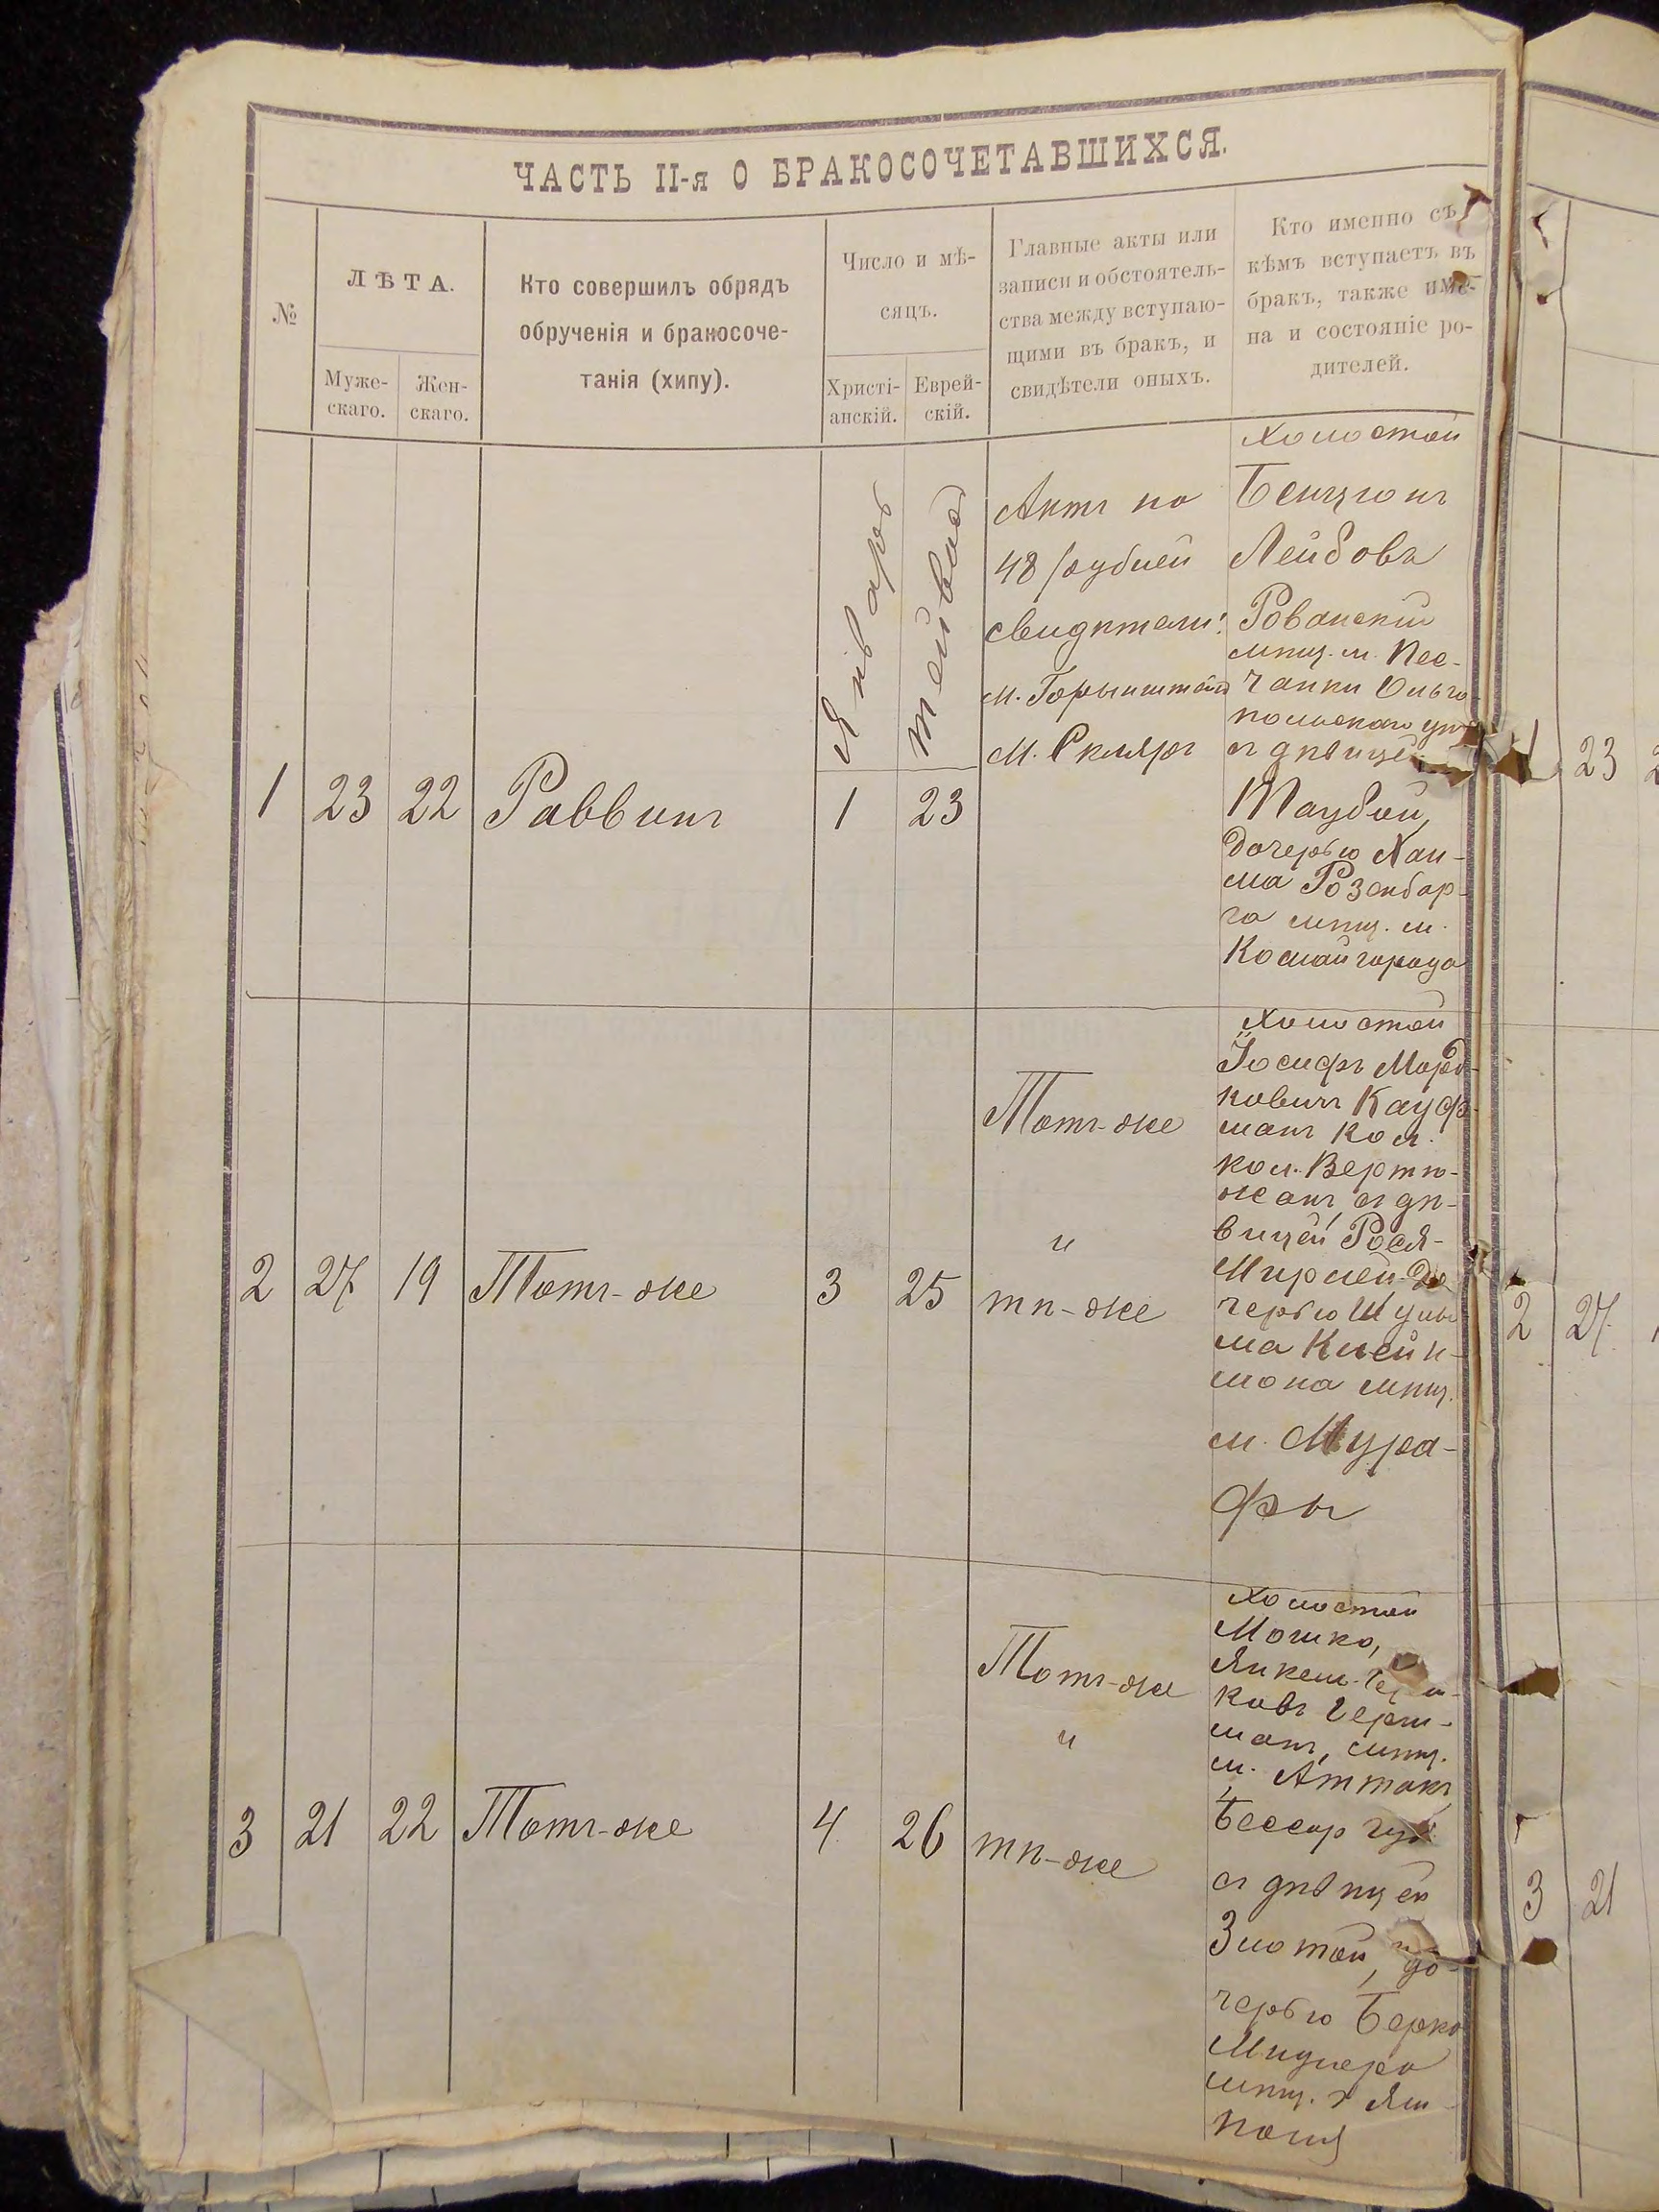 ЧАСТЬ II-я О БРАКОСОЧЕТАВШИХСЯ.
№
ЛѢТА.
Муже-
скаго.
Жен-
скаго.
Кто совершилъ обрядъ
обрученія и бракосоче-
танія (хипу).
Число и мѣ-
сяцъ.
Христі-
анскій.
Еврей-
скій.
Главные акты или
записи и обстоятель-
ства между вступаю-
щими въ бракъ, и
свидѣтели оныхъ.
Кто именно съ
кѣмъ вступаетъ въ
бракъ, также име-
на и состояніе ро-
дителей.
1
23
22
Раввинъ
Январь
1
Тейвас
23
Актъ на
48 рублей
свидѣтели:
М. Горынштейн
М. Скляръ
Холостой
Бенціонъ
Лейбовъ
Рованский
мѣщ. м. Пес-
чанки Ольго-
польскаго
съ дѣвицей
Таубой,
дочерью Хаи-
ма Розенбар-
га мѣщ. м.
Комайгорода
2
27
19
Тотъ-же
3
25
Тотъ-же
и
тѣ-же
Холостой
Іосифъ Морд-
ковичъ Кауф-
манъ кол.
кол. Вертю-
жанъ, съ дѣ-
вицей Рося-
Мирлей до-
черью Шулы-
ма Клейн-
мана мѣщ.
м. Мура-
фы
3
21
22
Тотъ-же
4
26
Тотъ-же
и
тѣ-же
Холостой
Мошко,
Янкель
ковъ Герш-
манъ, мѣщ.
м. Атакъ,
Бессар. губ.
съ дѣвицей
Злотой, до-
черью Берко
Мидлера
мѣщ. г. Ям-
поля
23
2
27
3
21